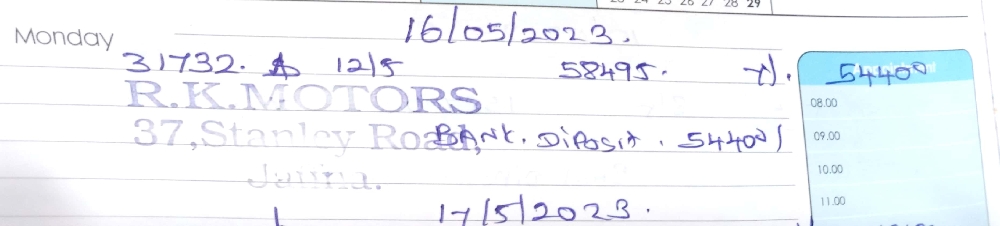 23 24 25 26 27 28 29
16/05/2023.
Monday
31732. A 12/5 58495. 54400
R.K.MOTORS
08.00
37,Stanley Road,
BANK. Diposit. 54400/
09.00
10.00
Jaffna.
11.00
17/5/2023.